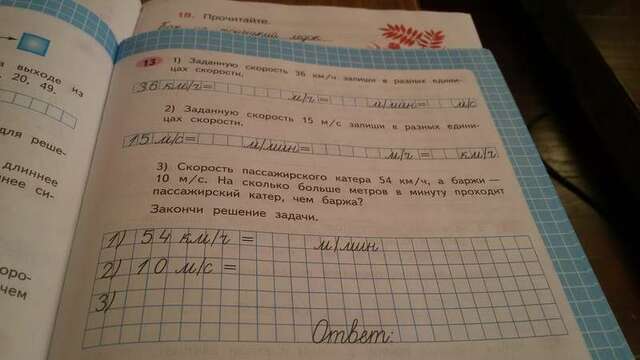 18. Прочитайте.
выходе из
20, 49.
для реше-
длиннее
нее си-
оро-
чем
13 1) Заданную скорость 36 км/ч запиши в разных едини-
цах скорости.
36 км/ч= м/ч= м/мин= м/с
2) Заданную скорость 15 м/с запиши в разных едини-
цах скорости.
15 м/с= м/мин= м/ч= км/ч
3) Скорость пассажирского катера 54 км/ч, а баржи —
10 м/с. На сколько больше метров в минуту проходит
пассажирский катер, чем баржа?
Закончи решение задачи.
1) 54 км/ч = м/мин
2) 10 м/с =
3)
Ответ: